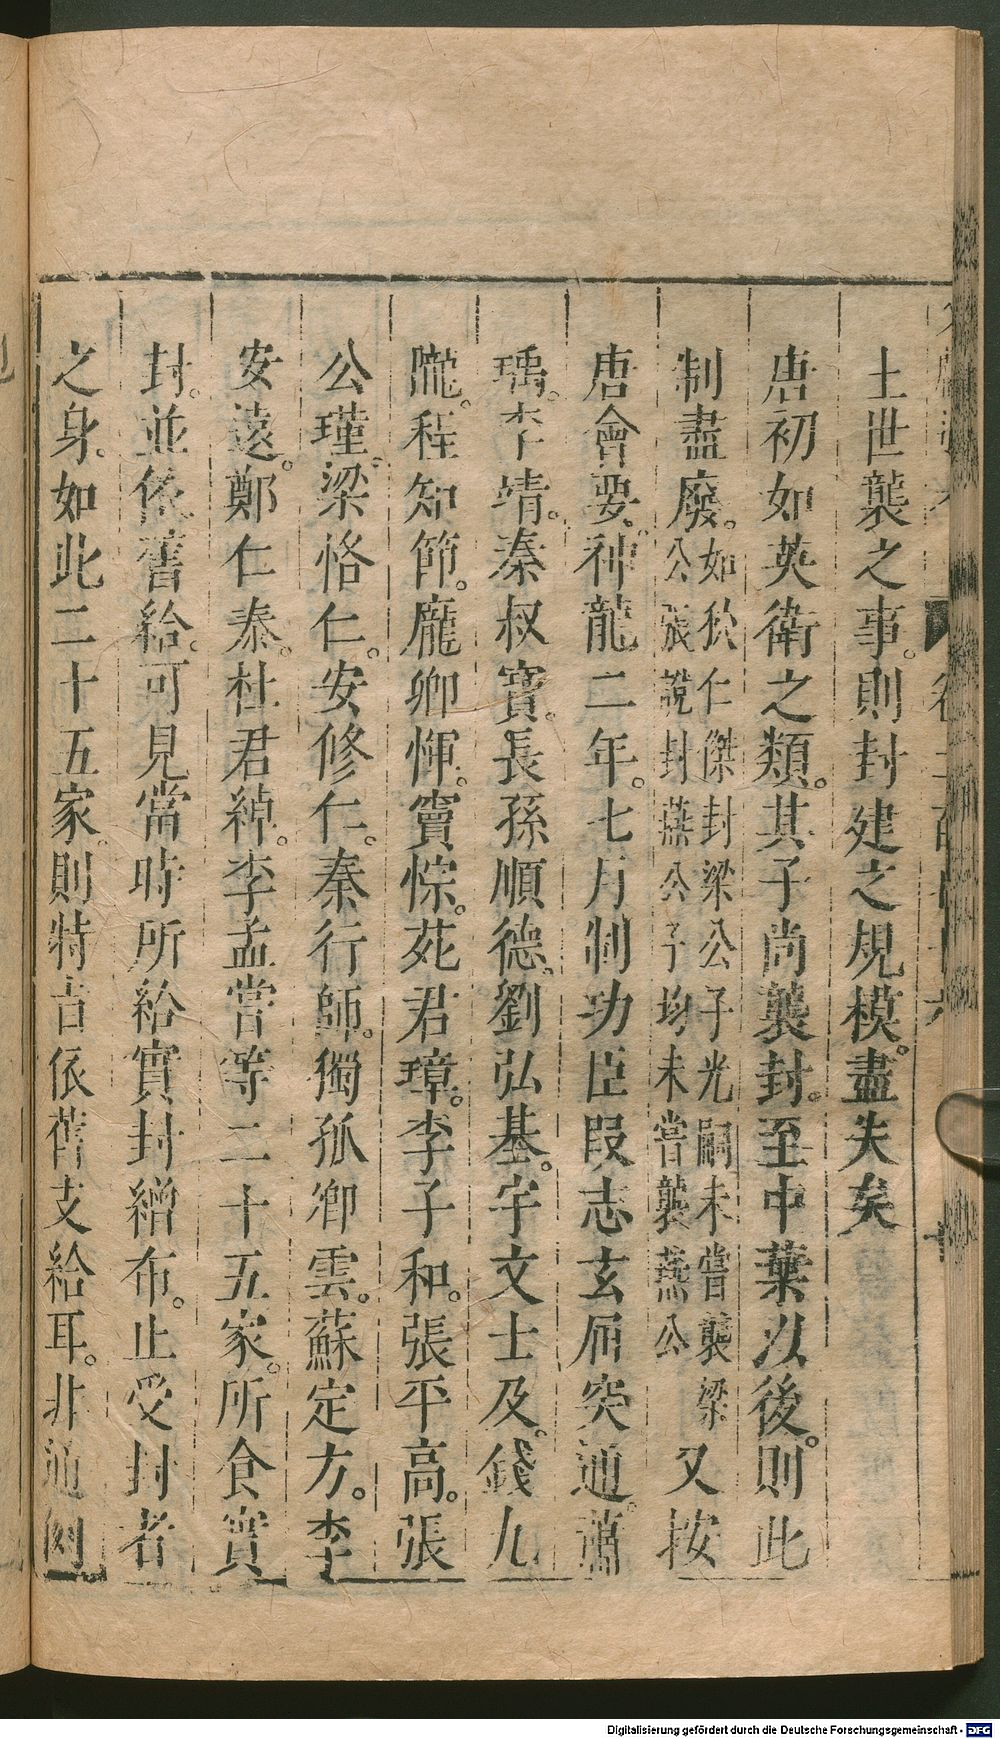 土世襲之事。則封建之規模。盡失矣
唐初如英衛之類。其子尚襲封。至中葉以後。則此
制盡廢。如狄仁傑封梁公子光嗣未嘗襲梁公張說封燕公子均未嘗襲燕公又按
唐會要。神龍二年。七月制功臣叚志玄屈突通。蕭
瑀。李靖。秦叔寳。長孫順德。劉弘基。宇文士及。錢九
隴。程知節。龐卿惲。竇悰。苑君璋。李子和。張平高。張
公瑾。梁恪仁。安修仁。秦行師。獨孤卿雲。蘇定方。李
安遠。鄭仁泰。杜君綽。李孟嘗等二十五家。所食實
封。並依舊給。可見當時所給實封繒布。止受封者
之身。如此二十五家。則特旨依舊支給耳。非通例
Digitalisierung gefördert durch die Deutsche Forschungsgemeinschaft - DFG